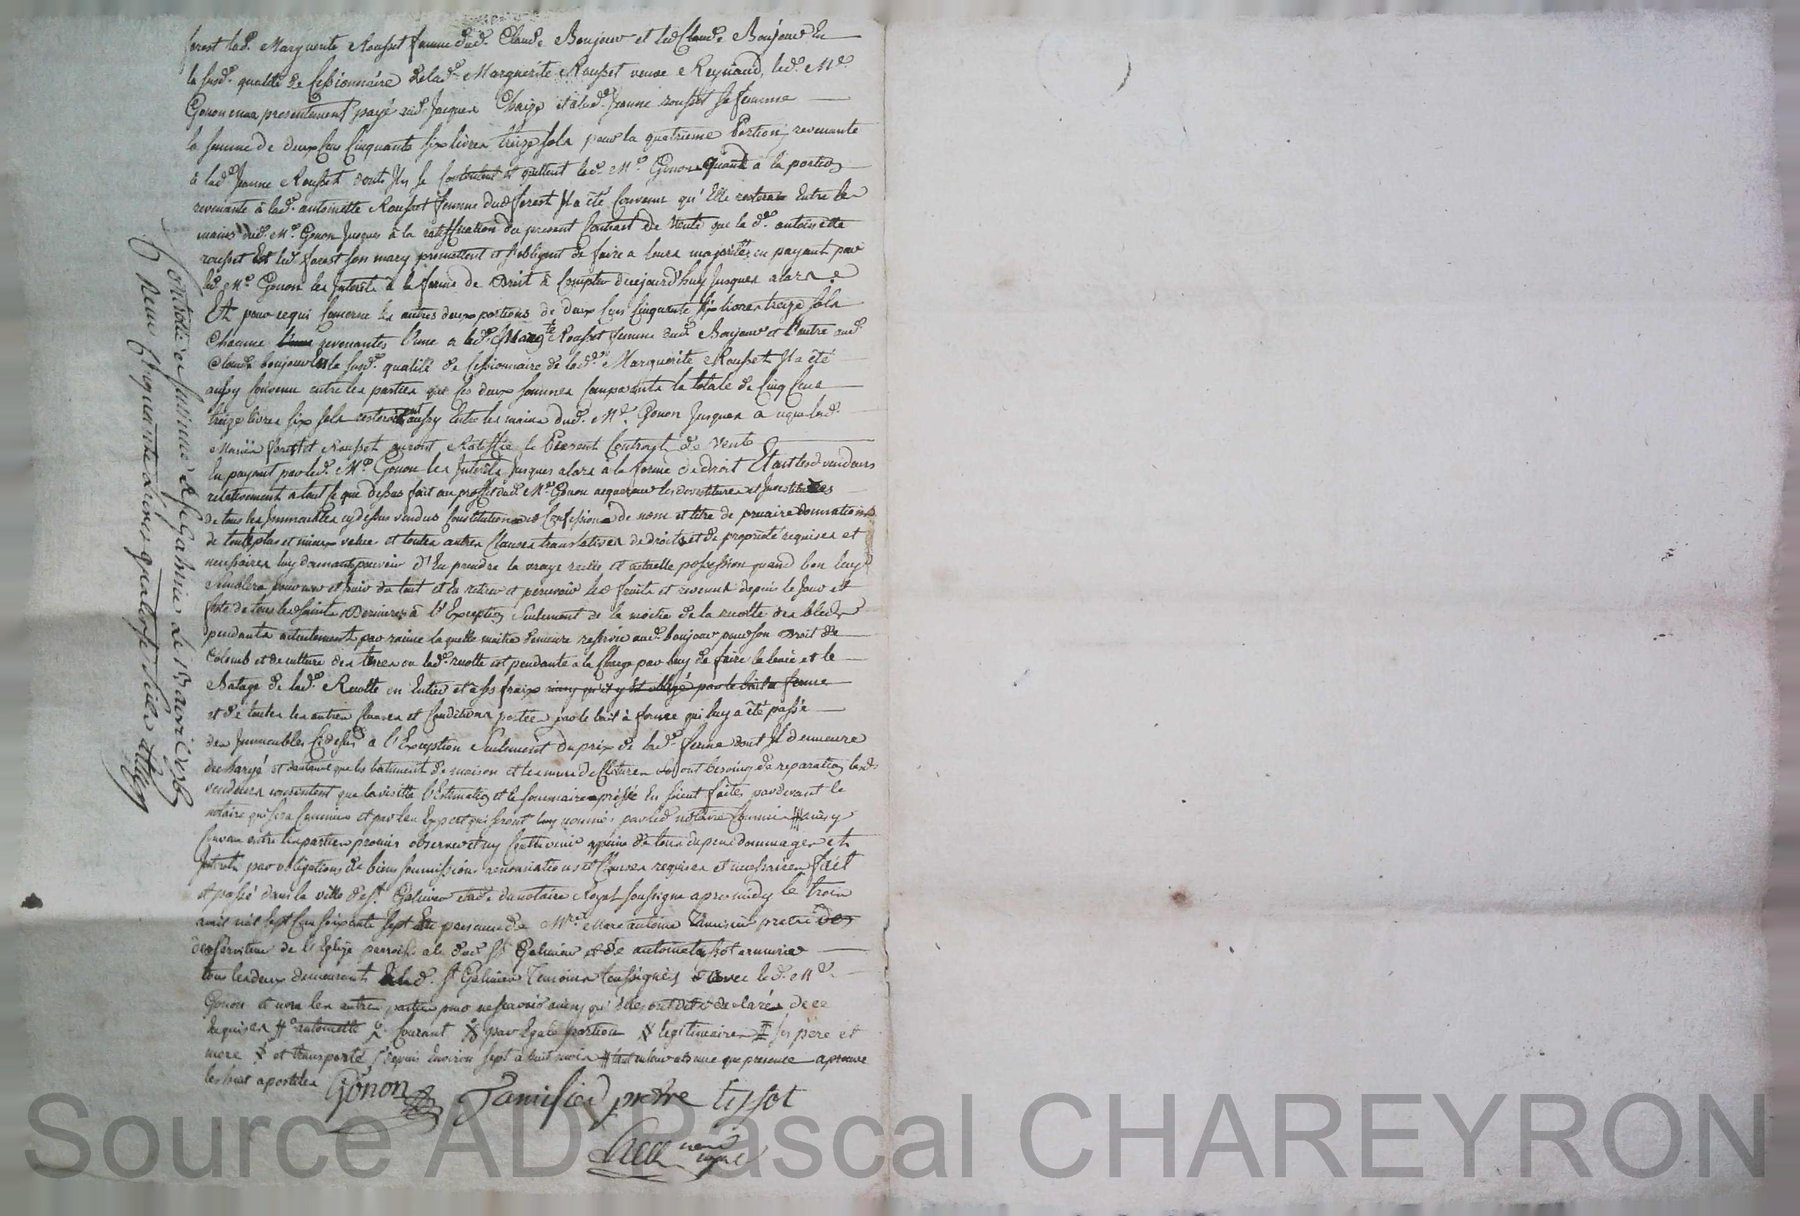 forest lad.e Marguerite Rousset femme dud. Claude Bonjour et led. Claude Bonjour En
la susd.e qualité de Cessionnaire de lad.e Marguerite Rousset veuve Reynaud, led. M.e
Gonon a presentement payé aud. Jacques Chaize et a lad.e Jeanne rousset sa femme
la somme de deux Cens Cinquante six livres treize sols pour la quatrieme Portion revenante
à lad.e Jeanne Rousset dont Ils se Contentent et quittent led. M.e Gonon quand a la portion
revenante à lad.e antoinette Rousset femme dud. forest Il a été Convenu qu'Elle restera Entre les
mains dud. M.e Gonon Jusques à la ratiffication du present Contract de Vente que la d.e antoinette
rousset Et led. forest son mary promettent et s'obligent de faire a leurs majorités en payant par
led. M.e Gonon les Interets à la forme de Droit à Compter d'aujourd'huy Jusques alors
Et pour ce qui Concerne les autres deux portions de deux Cens Cinquante six livres treize sols
Chacune revenantes l'une a lad.e Marg.te Rousset femme dud. Bonjour et l'autre aud.
Claude bonjour En la susd.e qualité de Cessionnaire de lad.e Marguerite Rousset Il a été
aussy Convenu entre les parties que les deux sommes Composants la totale de Cinq Cens
treize livres six sols resteront aussy Entre les mains dud. M.e Gonon Jusques a ce que led.
Rousset auront Ratiffié le Present Contract de Vente
En payant par led. M.e Gonon les Interets Jusques alors à la forme de droit Etant lesd. vendeurs
relativement a tout ce que dessus fait au proffit dud. M.e Gonon acquereur les devestitures et Investitures
de tous les Immeubles cy dessus vendus Constitution et Confession de nom et titre de precaire donnations
de toutte plus et mieux value et toutes autres Clauses translatives de droits et de proprieté requises et
necessaires luy donnant pouvoir d'En prendre la vraye reelle et actuelle possession quand bon luy
semblera pour user et jouir du tout et En retirer et percevoir les fruits et revenus depuis le Jour et
fete de tous les Saints Derniere à l'Exception Seulement de la moitié de la recolte des bleds
pendants actuellement par racine laquelle moitié demeure reservée aud. bonjour pour son Droit de
Colomb et de culture des terres ou lad.e recolte est pendante à la Charge par luy de faire la levée et le
Batage de lad.e Recolte en Entier et a ses fraix
et de toutes les autres Clauses et Conditions portées par le bail à ferme qui luy a été passé
des Immeubles Cy dessus à l'Exception Seulement du prix de lad.e ferme dont Il demeure
dechargé et d'autant que les batiments de maison et les murs de Cloture ont besoing de reparation lesd.
vendeurs consentent que la visitte l'Estimation et le sommaire En soient faites pardevant le
notaire qui sera Commis et par les Experts qui seront luy nommés par led. notaire Commis # ainsy
Convenu entre les parties promis observer et ny Contrevenir a peine de tous depens dommages et
Interets par obligations de biens soumissions renonciations et Clauses requises et necessaires fait
et passé dans la ville de S.t Galmier etude du notaire Royal soussigné apres midy le trois
avril mil sept Cens soixante sept presence de M.re Marc antoine Tamisier pretre
desserviteur de l'Eglise parroissiale dud. S.t Galmier et de antoine tissot armurier
tous les deux demeurants S.t Galmier Temoins soussignés avec led. M.e
Gonon et non les autres parties pour ne scavoir ainsy qu'elles ont dit et declaré de ce
Enquises # antoinette Courant par Egale portion legitimaires ses pere et
mere et transporté depuis Environ sept a huit mois que presence aprouve
les huit apostilles
Gonon Tamisier pretre tissot
no.re royal
Controllé et Insinué à S.t Galmier Le 15 avril 1767
Reçu Cinquante livres quatorze sols
Source AD/Pascal CHAREYRON